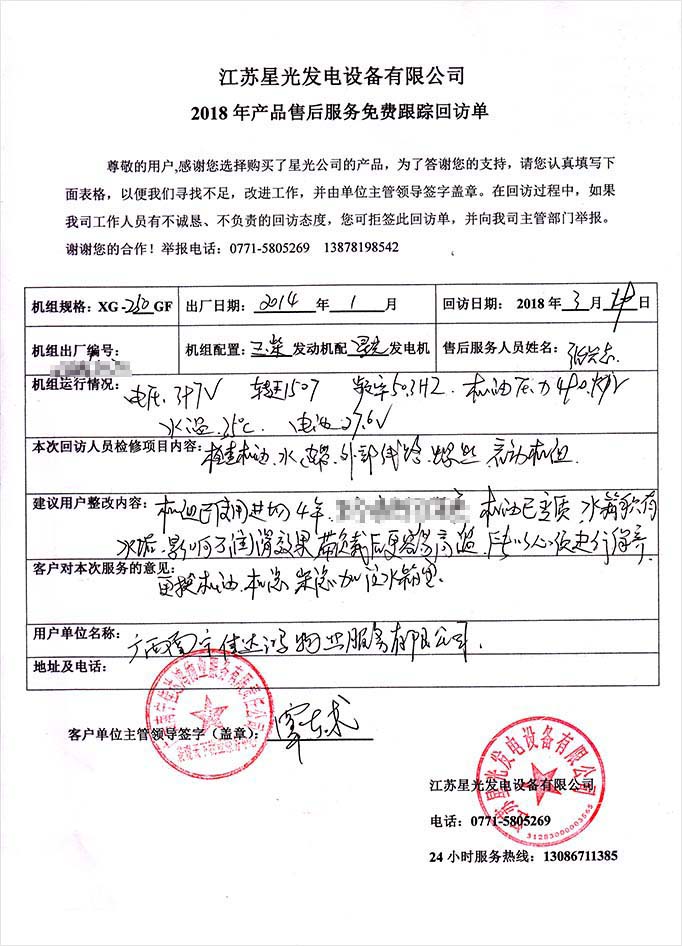 江苏星光发电设备有限公司
2018 年产品售后服务免费跟踪回访单
尊敬的用户,感谢您选择购买了星光公司的产品，为了答谢您的支持，请您认真填写下
面表格，以便我们寻找不足，改进工作，并由单位主管领导签字盖章。在回访过程中，如果
我司工作人员有不诚恳、不负责的回访态度，您可拒签此回访单，并向我司主管部门举报。
谢谢您的合作！举报电话：0771-5805269 13878198542
机组规格：XG-250GF 出厂日期：2014 年 1 月 回访日期： 2018 年 3 月 日
机组出厂编号： 机组配置：玉柴发动机配星光发电机 售后服务人员姓名：
机组运行情况：电压.397V 转速1507 频率50.3HZ. 机油压力
水温.35℃. 电池.27.6V
本次回访人员检修项目内容：检查机油.水.皮带.外部线路.螺丝 启动机组.
建议用户整改内容：机组已使用进4年. 机油已变质.水箱积有
水垢.影响了润滑效果带负载后更容易高温.所以必须进行保养
客户对本次服务的意见：更换机油.机滤 柴滤加注水箱宝.
用户单位名称：广西南宁佳达鸿物业服务有限公司.
地址及电话：
客户单位主管领导签字（盖章）：
江苏星光发电设备有限公司
江苏星光发电设备有限公司
电话：0771-5805269
31283000003565
24 小时服务热线：13086711385